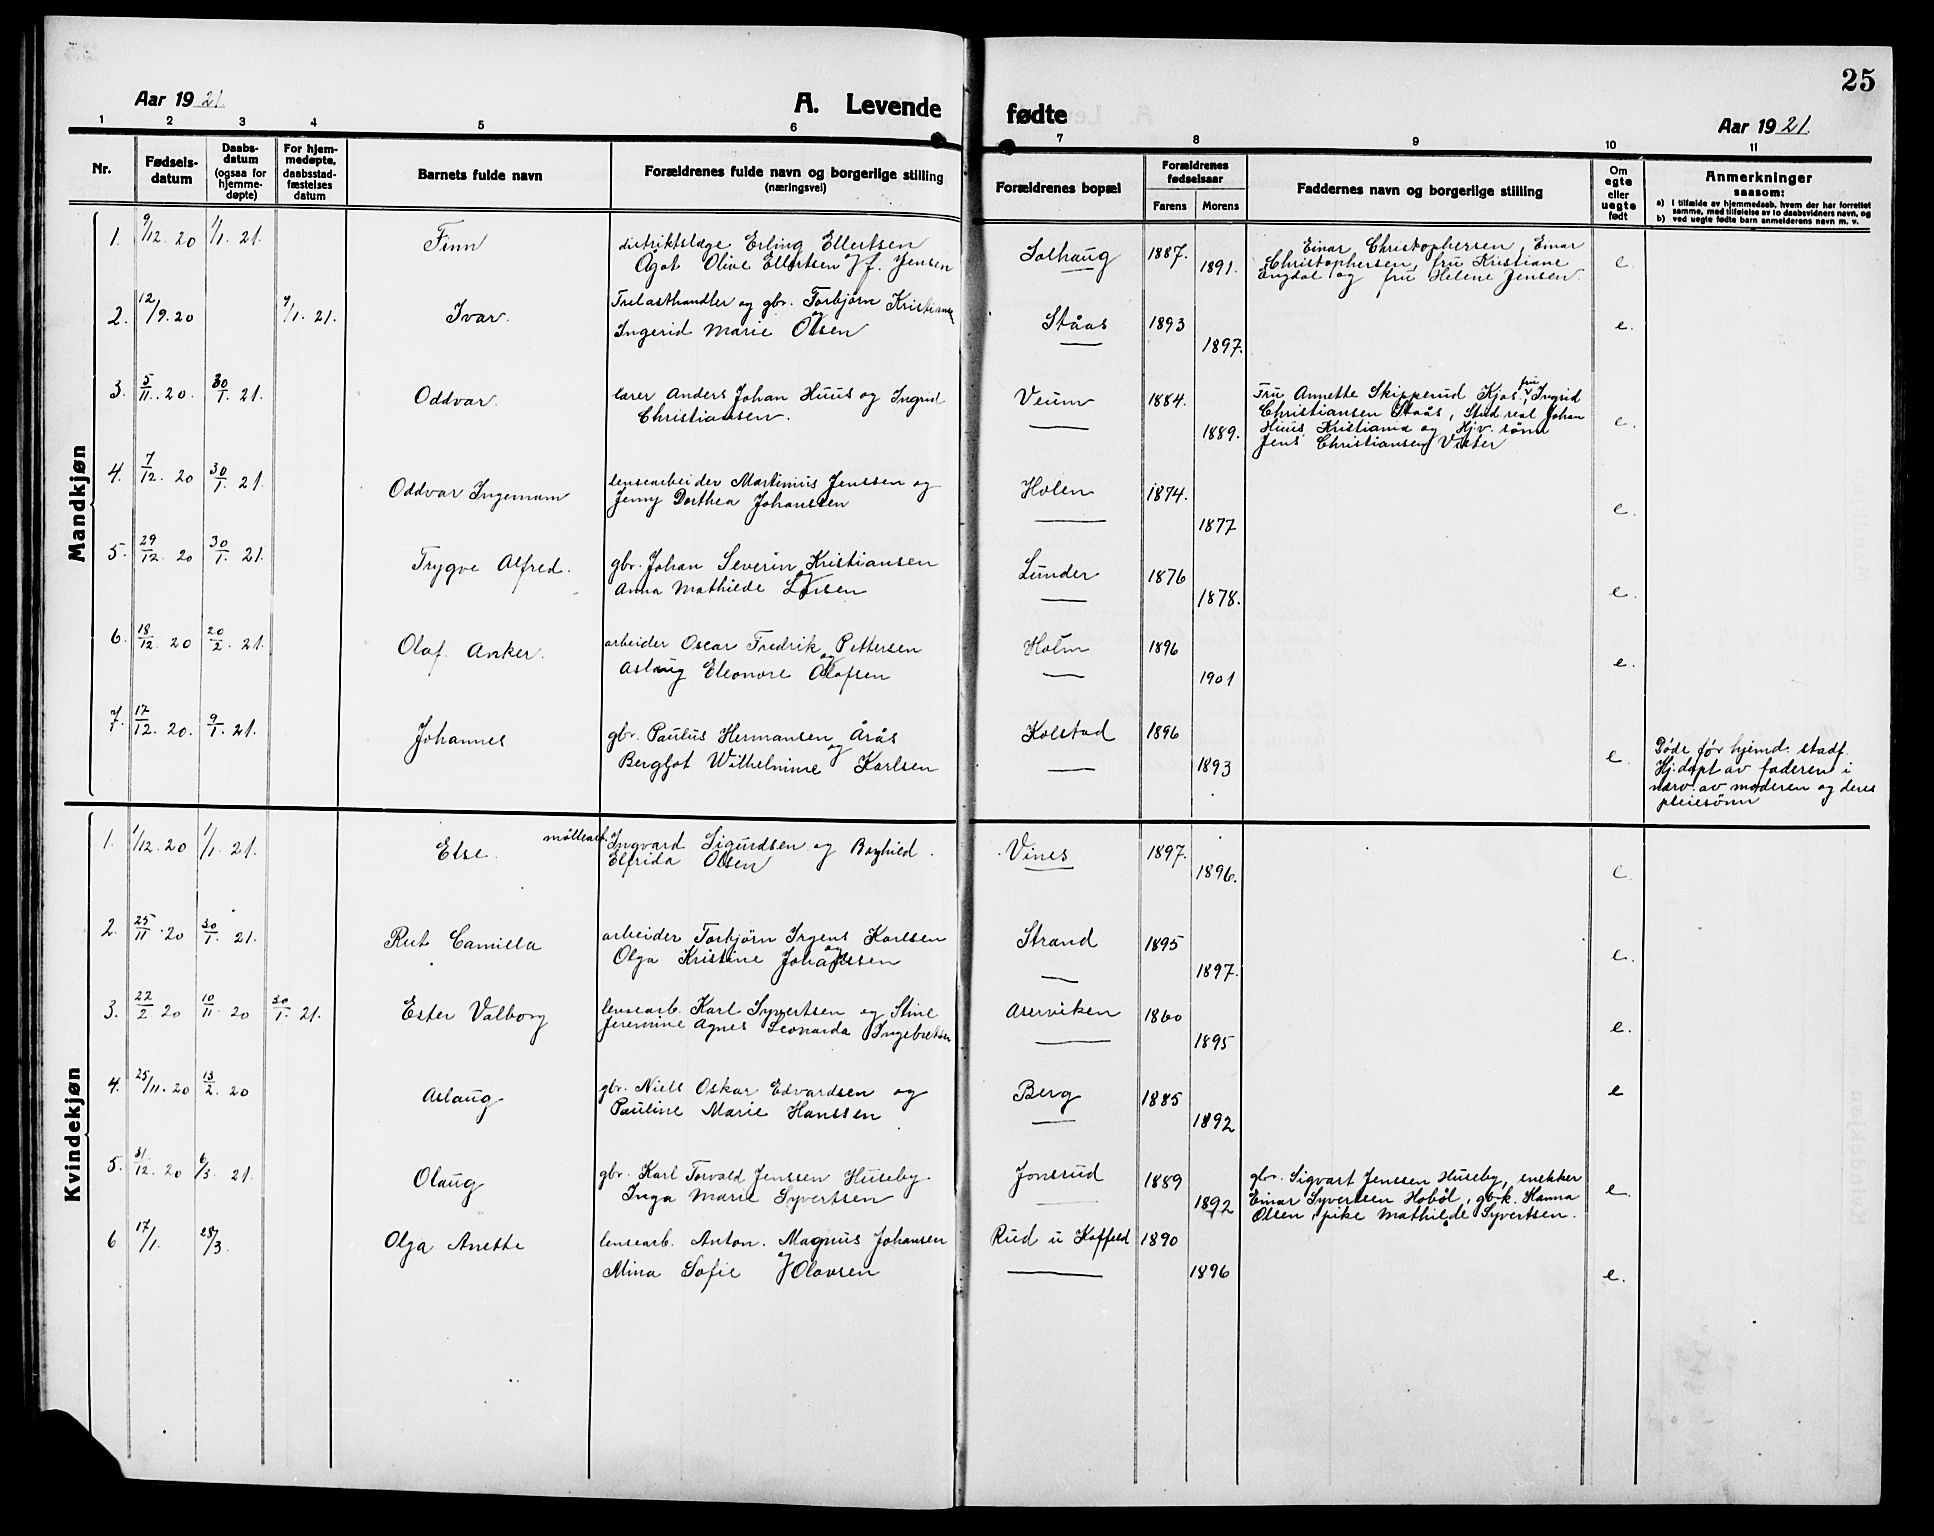 25
Aar 1921.
A. Levende fødte
Aar 1921.
1 2 3 4 5 6 7 8 9 10 11
Nr.
Fødsels-
datum
Daabs-
datum
(ogsaa for
hjemme-
døpte)
For hjem-
medøpte,
daabsstad-
fæstelses
datum
Barnets fulde navn
Forældrenes fulde navn og borgerlige stilling
(næringsvei)
Forældrenes bopæl
Forældrenes
fødselsaar
Farens
Morens
Faddernes navn og borgerlige stilling
Om
egte
eller
uegte
født
Anmerkninger
saasom:
a) i tilfælde av hjemmedaab, hvem der har forrettet
samme, med tilføielse av to daabsvidners navn, og
b) ved uegte fødte barn anmelderens navn m. v.
Mandkjøn
1. 9/12 20 1/1. 21. Finn
distriktslæge Erling Ellertsen
Ågot Olive Ellertsen f. Jensen
Solhaug 1887. 1891.
Einar Christophersen, Einar
Christophersen, fru Kristiane
Engdal og fru Helene Jensen.
e.
2. 12/9. 20 9/1. 21. Ivar.
Trelasthandler og gbr. Torbjørn Kristiansen
og
Ingerid Marie Olsen
Ståas 1893 1897.
e.
3. 5/11. 20. 30/1. 21. Oddvar.
lærer Anders Johan Huus og Ingrid
Christiansen.
Veum 1884. 1889.
fru
Fru Annette Skipperud Kjos, Ingrid
Christiansen Staås, Stud. real Johan
Huus Kristiania og Hjv. sønn
Jens Christiansen Vister
e.
4. 7/12. 20 30/1. 21. Oddvar Ingemann
lensearbeider Martinius Jenssen og
Jenny Dorthea Johanssen
Holen 1874. 1877
e.
5. 29/12. 20 30/1. 21. Trygve Alfred.
gbr. Johan Severin Kristiansen
og
Anna Mathilde Larsen
Lunder 1876 1878.
e.
6. 18/12. 20 20/2. 21. Olaf Anker.
arbeider Oscar Fredrik Pettersen
og
Aslaug Eleonore Olofsen
Holm 1896 1901
e.
7. 17/12. 20. 9/1. 21. Johannes
gbr. Paulus Hermansen Årås
og
Bergljot Wilhelmine Karlsen
Kolstad 1896 1893
e.
Døde før hjemd. stadf.
Hj. døpt av faderen i
nærv. av moderen og deres
pleiesønn
Kvindekjøn
1. 1/12. 20 1/1. 21. Else.
møllearb. Ingvard Sigurdsen og Borghild
Elfrida Olsen
Vines 1897. 1896.
e.
2. 25/11 20 30/1. 21. Rut Camilla
arbeider Torbjørn Irgens Karlsen
og
Olga Kristine Johanssen
Strand 1895 1897.
e.
3. 22/2 20 10/11. 20 30/1. 21. Ester Valborg
lensearb. Karl Syvertsen og Stine
Jeremine Agnes Leonarda Ingebretsen
Aserviken 1860 1895
e.
4. 25/11. 20 13/2. 20 Aslaug
gbr. Niels Oskar Edvardsen og
Pauline Marie Hanssen
Berg 1885 1892
e
5. 31/12. 20 6/3. 21. Olaug
gbr. Karl Torvald Jenssen Huseby
Inga Marie Syvertsen
Jonsrud 1889 1892
gbr. Sigvart Jenssen Huseby, snekker
Einar Syvertsen Hobøl, gbk. Hanna
Olsen, pike Mathilde Syvertsen.
e.
6 17/1. 28/3. Olga Anette
lensearb. Anton Magnus Johansen
og
Mina Sofie Olavsen
Rud u Kaffeld 1890 1896
e.